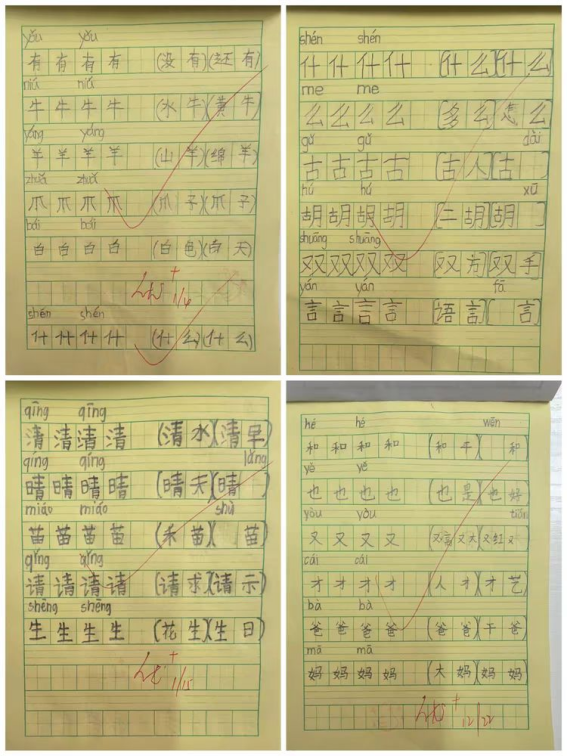 yǒu yǒu
有 有 有 有 (没 有)(还 有)
niú niú
牛 牛 牛 牛 (水 牛)(黄 牛)
yáng yáng
羊 羊 羊 羊 (山 羊)(绵 羊)
zhuǎ zhuǎ
爪 爪 爪 爪 (爪 子)(爪 子)
bái bái
白 白 白 白 (白 色)(白 天)
1/4
shén shén
什 什 什 什 (什 么)(什 么)
shén shén
什 什 什 什 [什 么][什 么]
me me
么 么 么 么 [多 么][怎 么]
gǔ gǔ dài
古 古 古 古 [古 人][古 ]
hú hú xū
胡 胡 胡 胡 [二 胡][胡 ]
shuāng shuāng
双 双 双 双 [双 方][双 手]
yán yán fā
言 言 言 言 [语 言][ 言]
qīng qīng
清 清 清 清 (清 水)(清 早)
qíng qíng lǎng
晴 晴 晴 晴 (晴 天)(晴 )
miáo miáo shù
苗 苗 苗 苗 (禾 苗)( 苗)
qǐng qǐng
请 请 请 请 (请 求)(请 示)
shēng shēng
生 生 生 生 (花 生)(生 日)
1/15
hé hé wēn
和 和 和 和 (和 平)( 和)
yě yě
也 也 也 也 (也 是)(也 好)
yòu yòu
又 又 又 又 (又高 又大)(又红 又 )
cái cái
才 才 才 才 (人 才)(才 艺)
bà bà
爸 爸 爸 爸 (爸 爸)(干 爸)
mā mā
妈 妈 妈 妈 (大 妈)(妈 妈)
12/22